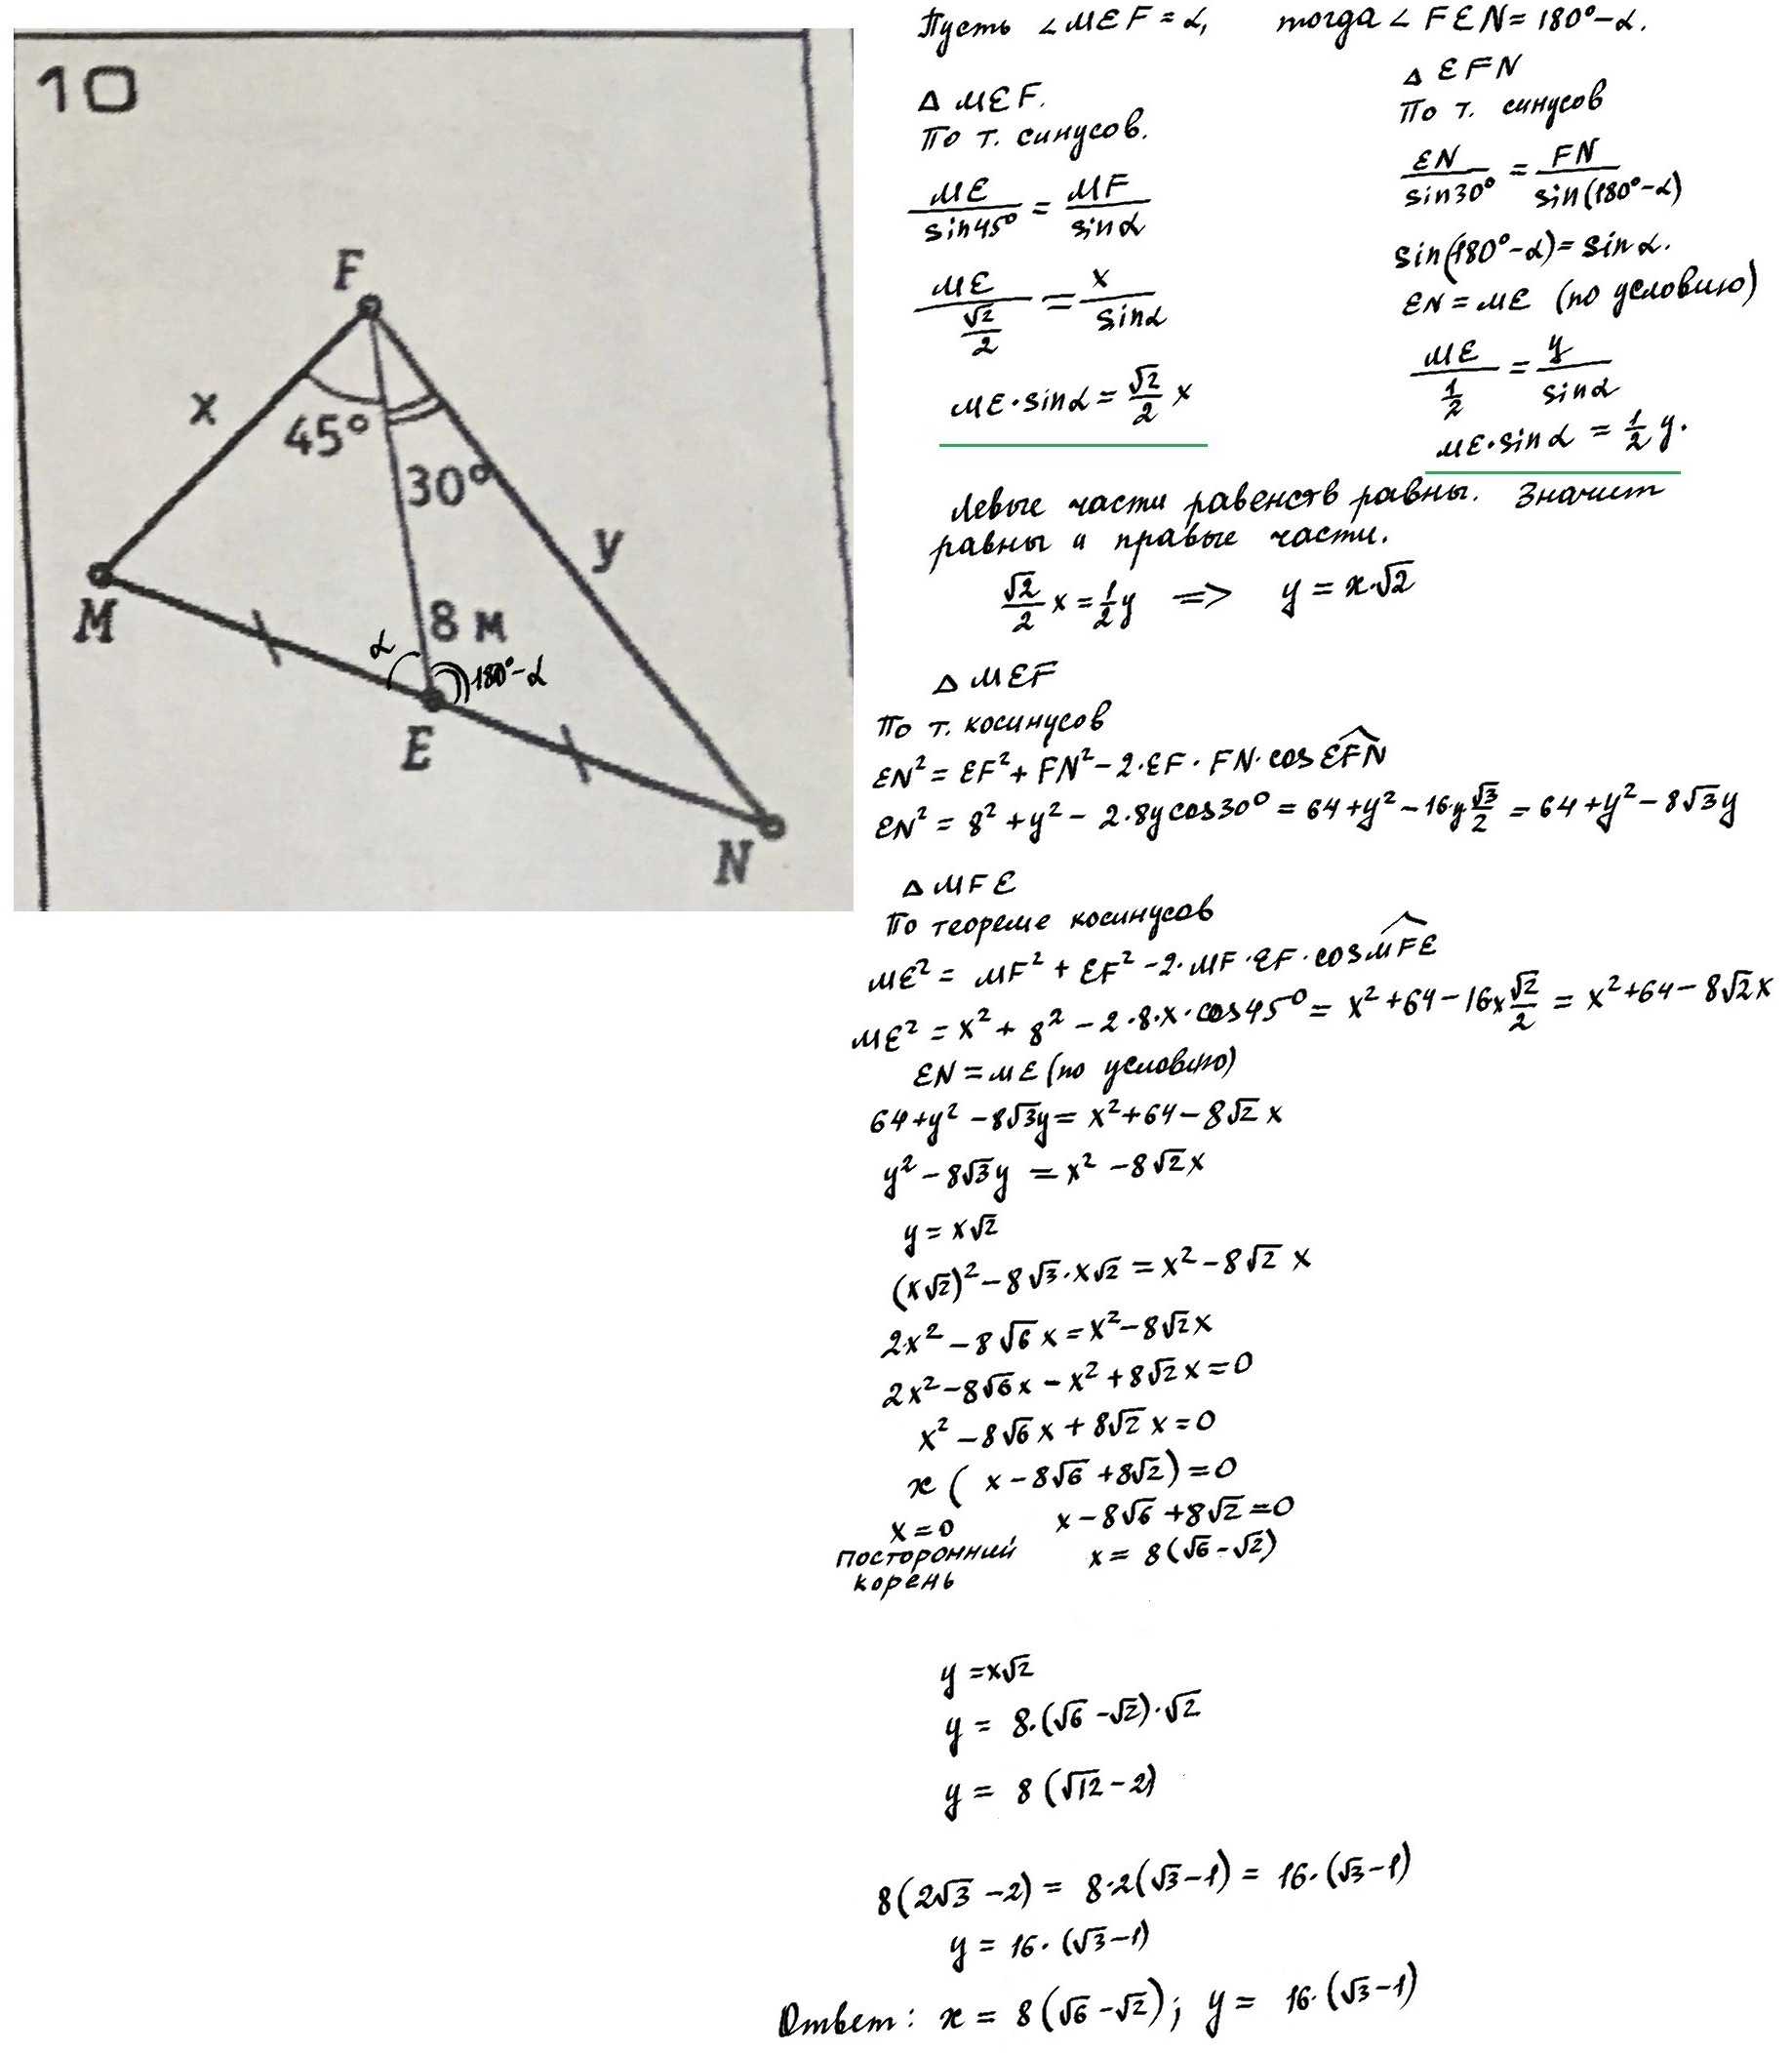 10
F
x
45°
30°
y
M
8 м
α
180°-α
E
N
Пусть ∠MEF = α, тогда ∠FEN = 180°-α.
△ MEF.
По т. синусов.
ME/sin45° = MF/sinα
ME/(√2/2) = x/sinα
ME·sinα = √2/2 x
△ EFN
По т. синусов
EN/sin30° = FN/sin(180°-α)
sin(180°-α) = sinα.
EN = ME (по условию)
ME/(1/2) = y/sinα
ME·sinα = 1/2 y.
Левые части равенств равны. Значит
равны и правые части.
√2/2 x = 1/2 y => y = x·√2
△ MEF
По т. косинусов
EN² = EF² + FN² - 2·EF·FN·cos EFN
EN² = 8² + y² - 2·8y cos30° = 64 + y² - 16·y √3/2 = 64 + y² - 8√3y
△ MFE
По теореме косинусов
ME² = MF² + EF² - 2·MF·EF·cos MFE
ME² = x² + 8² - 2·8·x·cos45° = x² + 64 - 16x √2/2 = x² + 64 - 8√2x
EN = ME (по условию)
64 + y² - 8√3y = x² + 64 - 8√2 x
y² - 8√3y = x² - 8√2x
y = x√2
(x√2)² - 8√3·x√2 = x² - 8√2 x
2x² - 8√6 x = x² - 8√2x
2x² - 8√6x - x² + 8√2x = 0
x² - 8√6x + 8√2x = 0
x( x - 8√6 + 8√2) = 0
x = 0 x - 8√6 + 8√2 = 0
посторонний x = 8(√6 - √2)
корень
y = x√2
y = 8·(√6 - √2)·√2
y = 8(√12 - 2)
8(2√3 - 2) = 8·2(√3 - 1) = 16·(√3 - 1)
y = 16·(√3 - 1)
Ответ: x = 8(√6 - √2); y = 16·(√3 - 1)